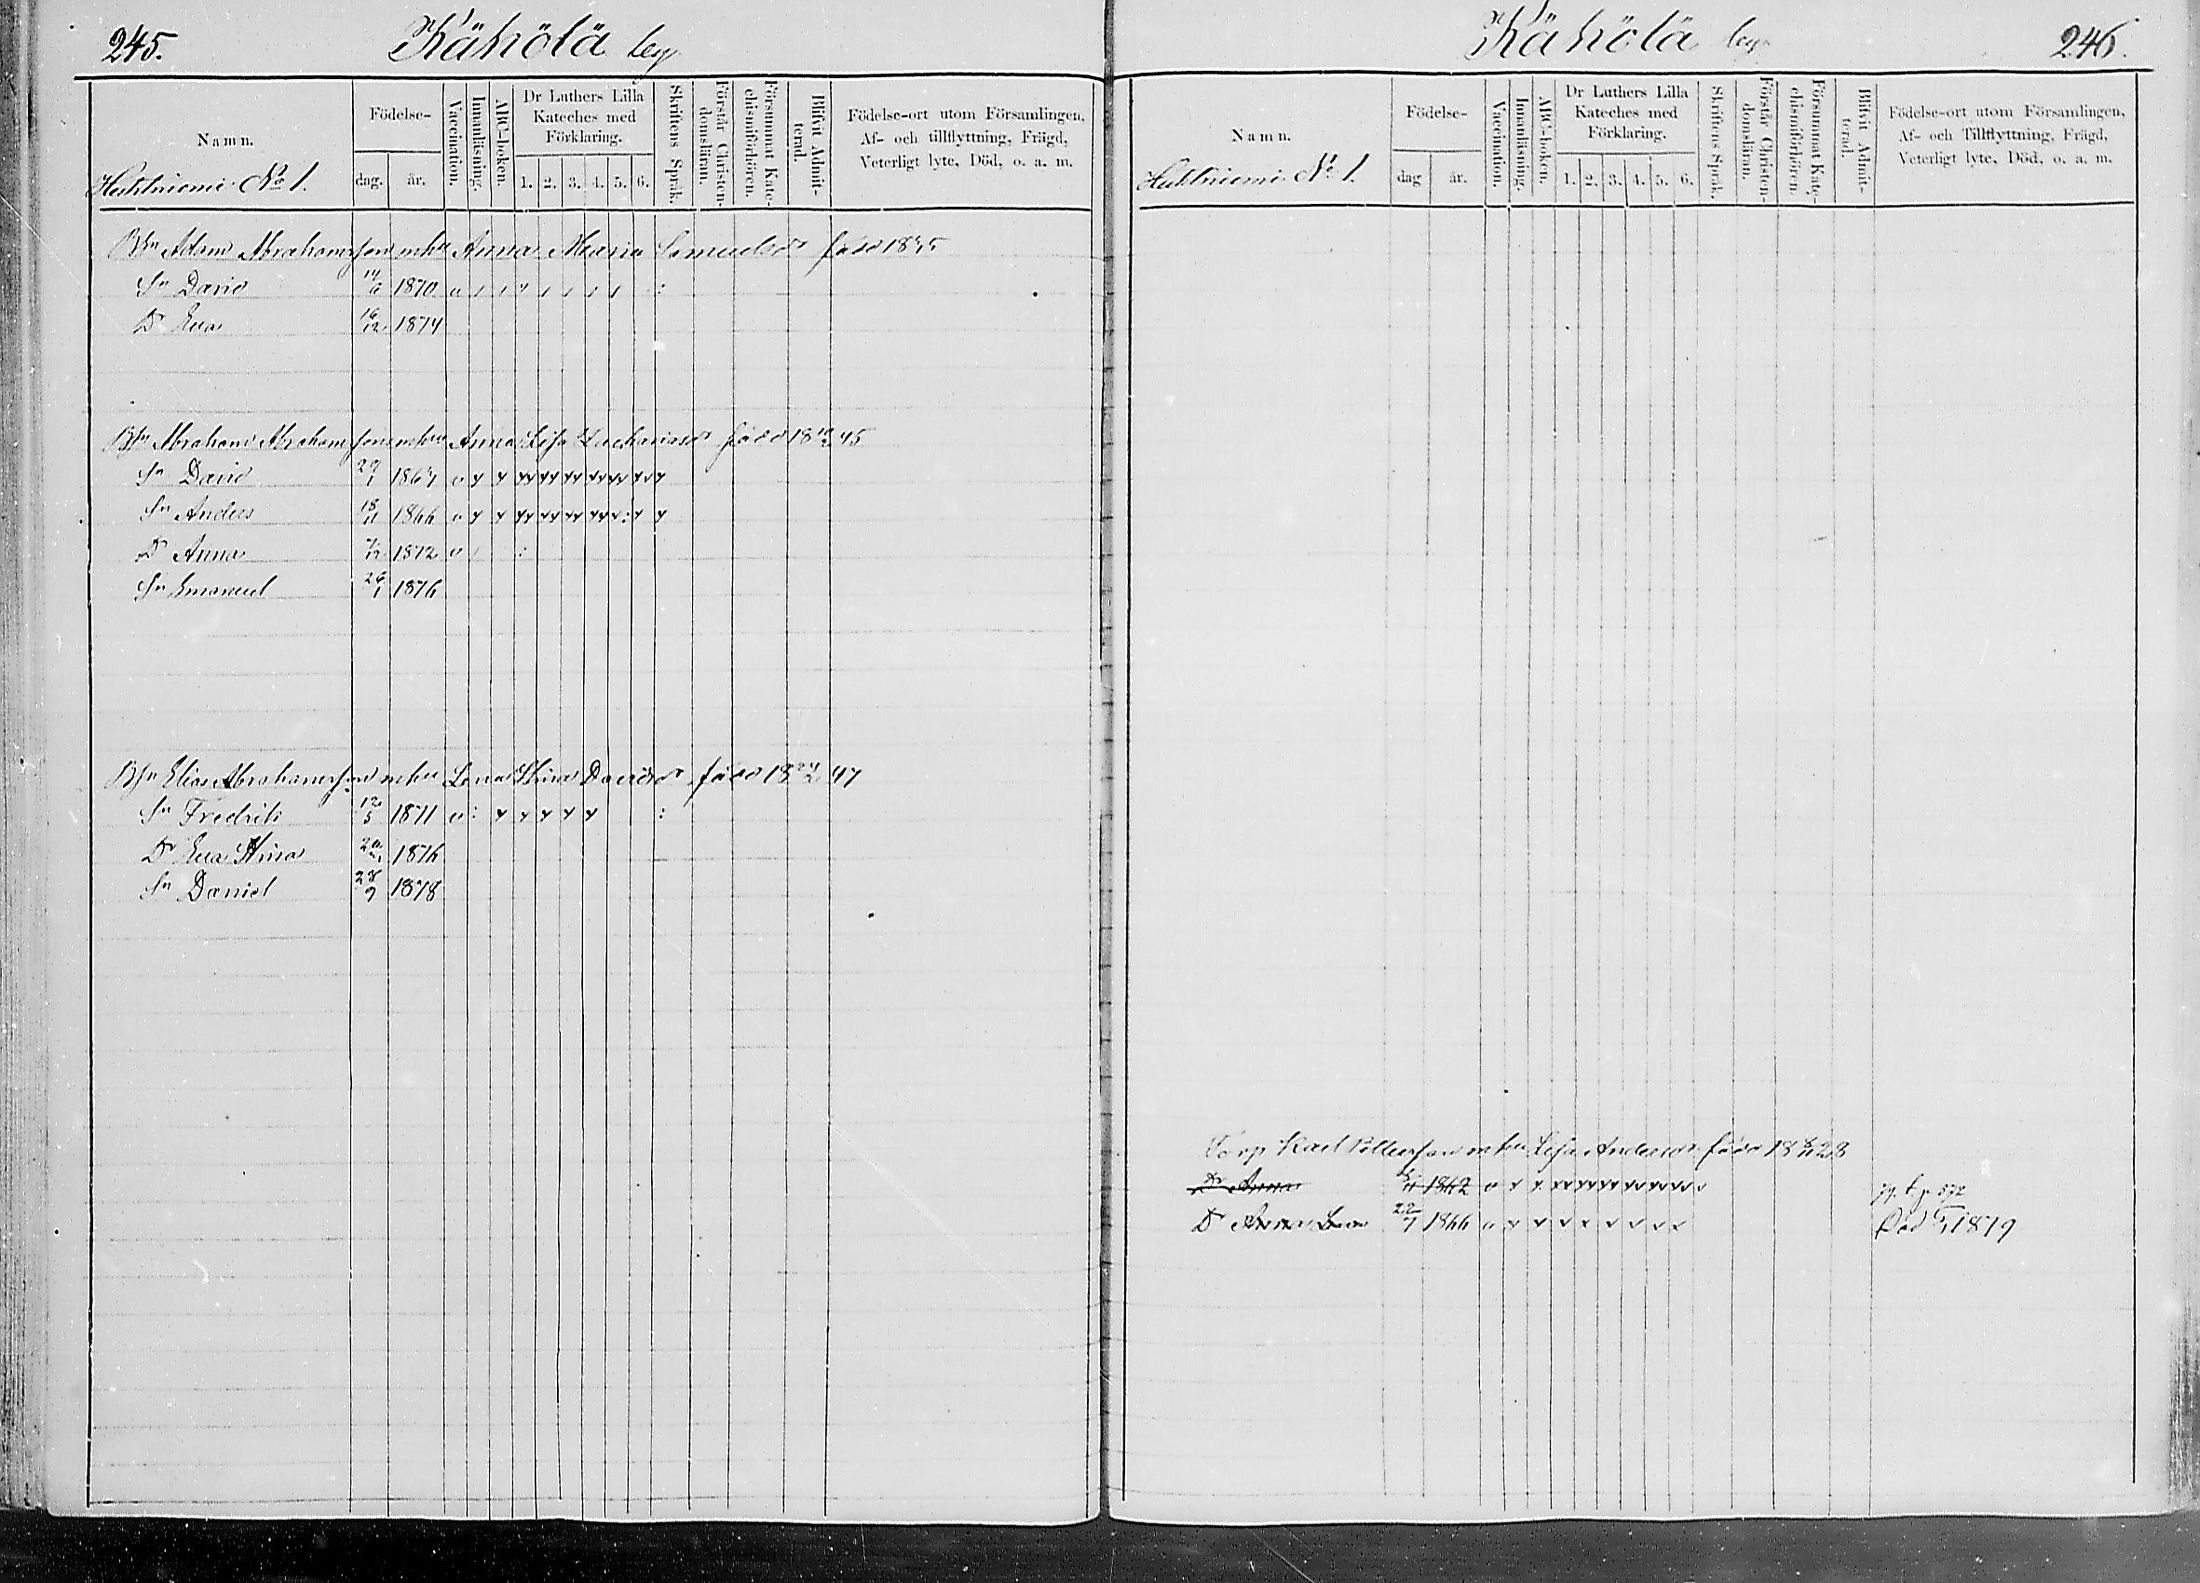 245.
Kähölä by
Namn.
Födelse-
dag.
år.
Vaccination.
Innanläsning.
ABC-boken.
Dr Luthers Lilla
Kateches med
Förklaring.
1. 2. 3. 4. 5. 6.
Skriftens Språk.
Förstår Christen-
domsläran.
Försummat Kate-
chismiförhören.
Blifvit Admit-
terad.
Födelse-ort utom Församlingen,
Af- och tillflyttning, Frägd,
Veterligt lyte, Död, o. a. m.
No 1.
Adam Abrahamsson Anna Maria född
Sn David 1870
Dr Eva 16/12 1874
Abraham Abrahamsson Anna Lisa född 45
Sn David
Sn Anders 18/11 1866
Dr Anna 1872
Sn Emanuel 26/1 1876
Elias Abrahamsson Lena Stina Davidsdr född 47
Sn Fredrik 12/5 1871
Dr Eva Stina 1876
Sn Daniel 28/9 1878
Kähölä by
246.
Namn.
Födelse-
dag
år.
Vaccination.
Innanläsning.
ABC-boken.
Dr Luthers Lilla
Kateches med
Förklaring.
1. 2. 3. 4. 5. 6.
Skriftens Språk.
Förstår Christen-
domsläran.
Försummat Kate-
chismiförhören.
Blifvit Admit-
terad.
Födelse-ort utom Församlingen,
Af- och Tillflyttning, Frägd,
Veterligt lyte, Död, o. a. m.
No 1.
Torp Karl Lisa Andersdr född 28
Dr Anna 1862
Dr Anna Lisa 22/7 1866 Död 1879